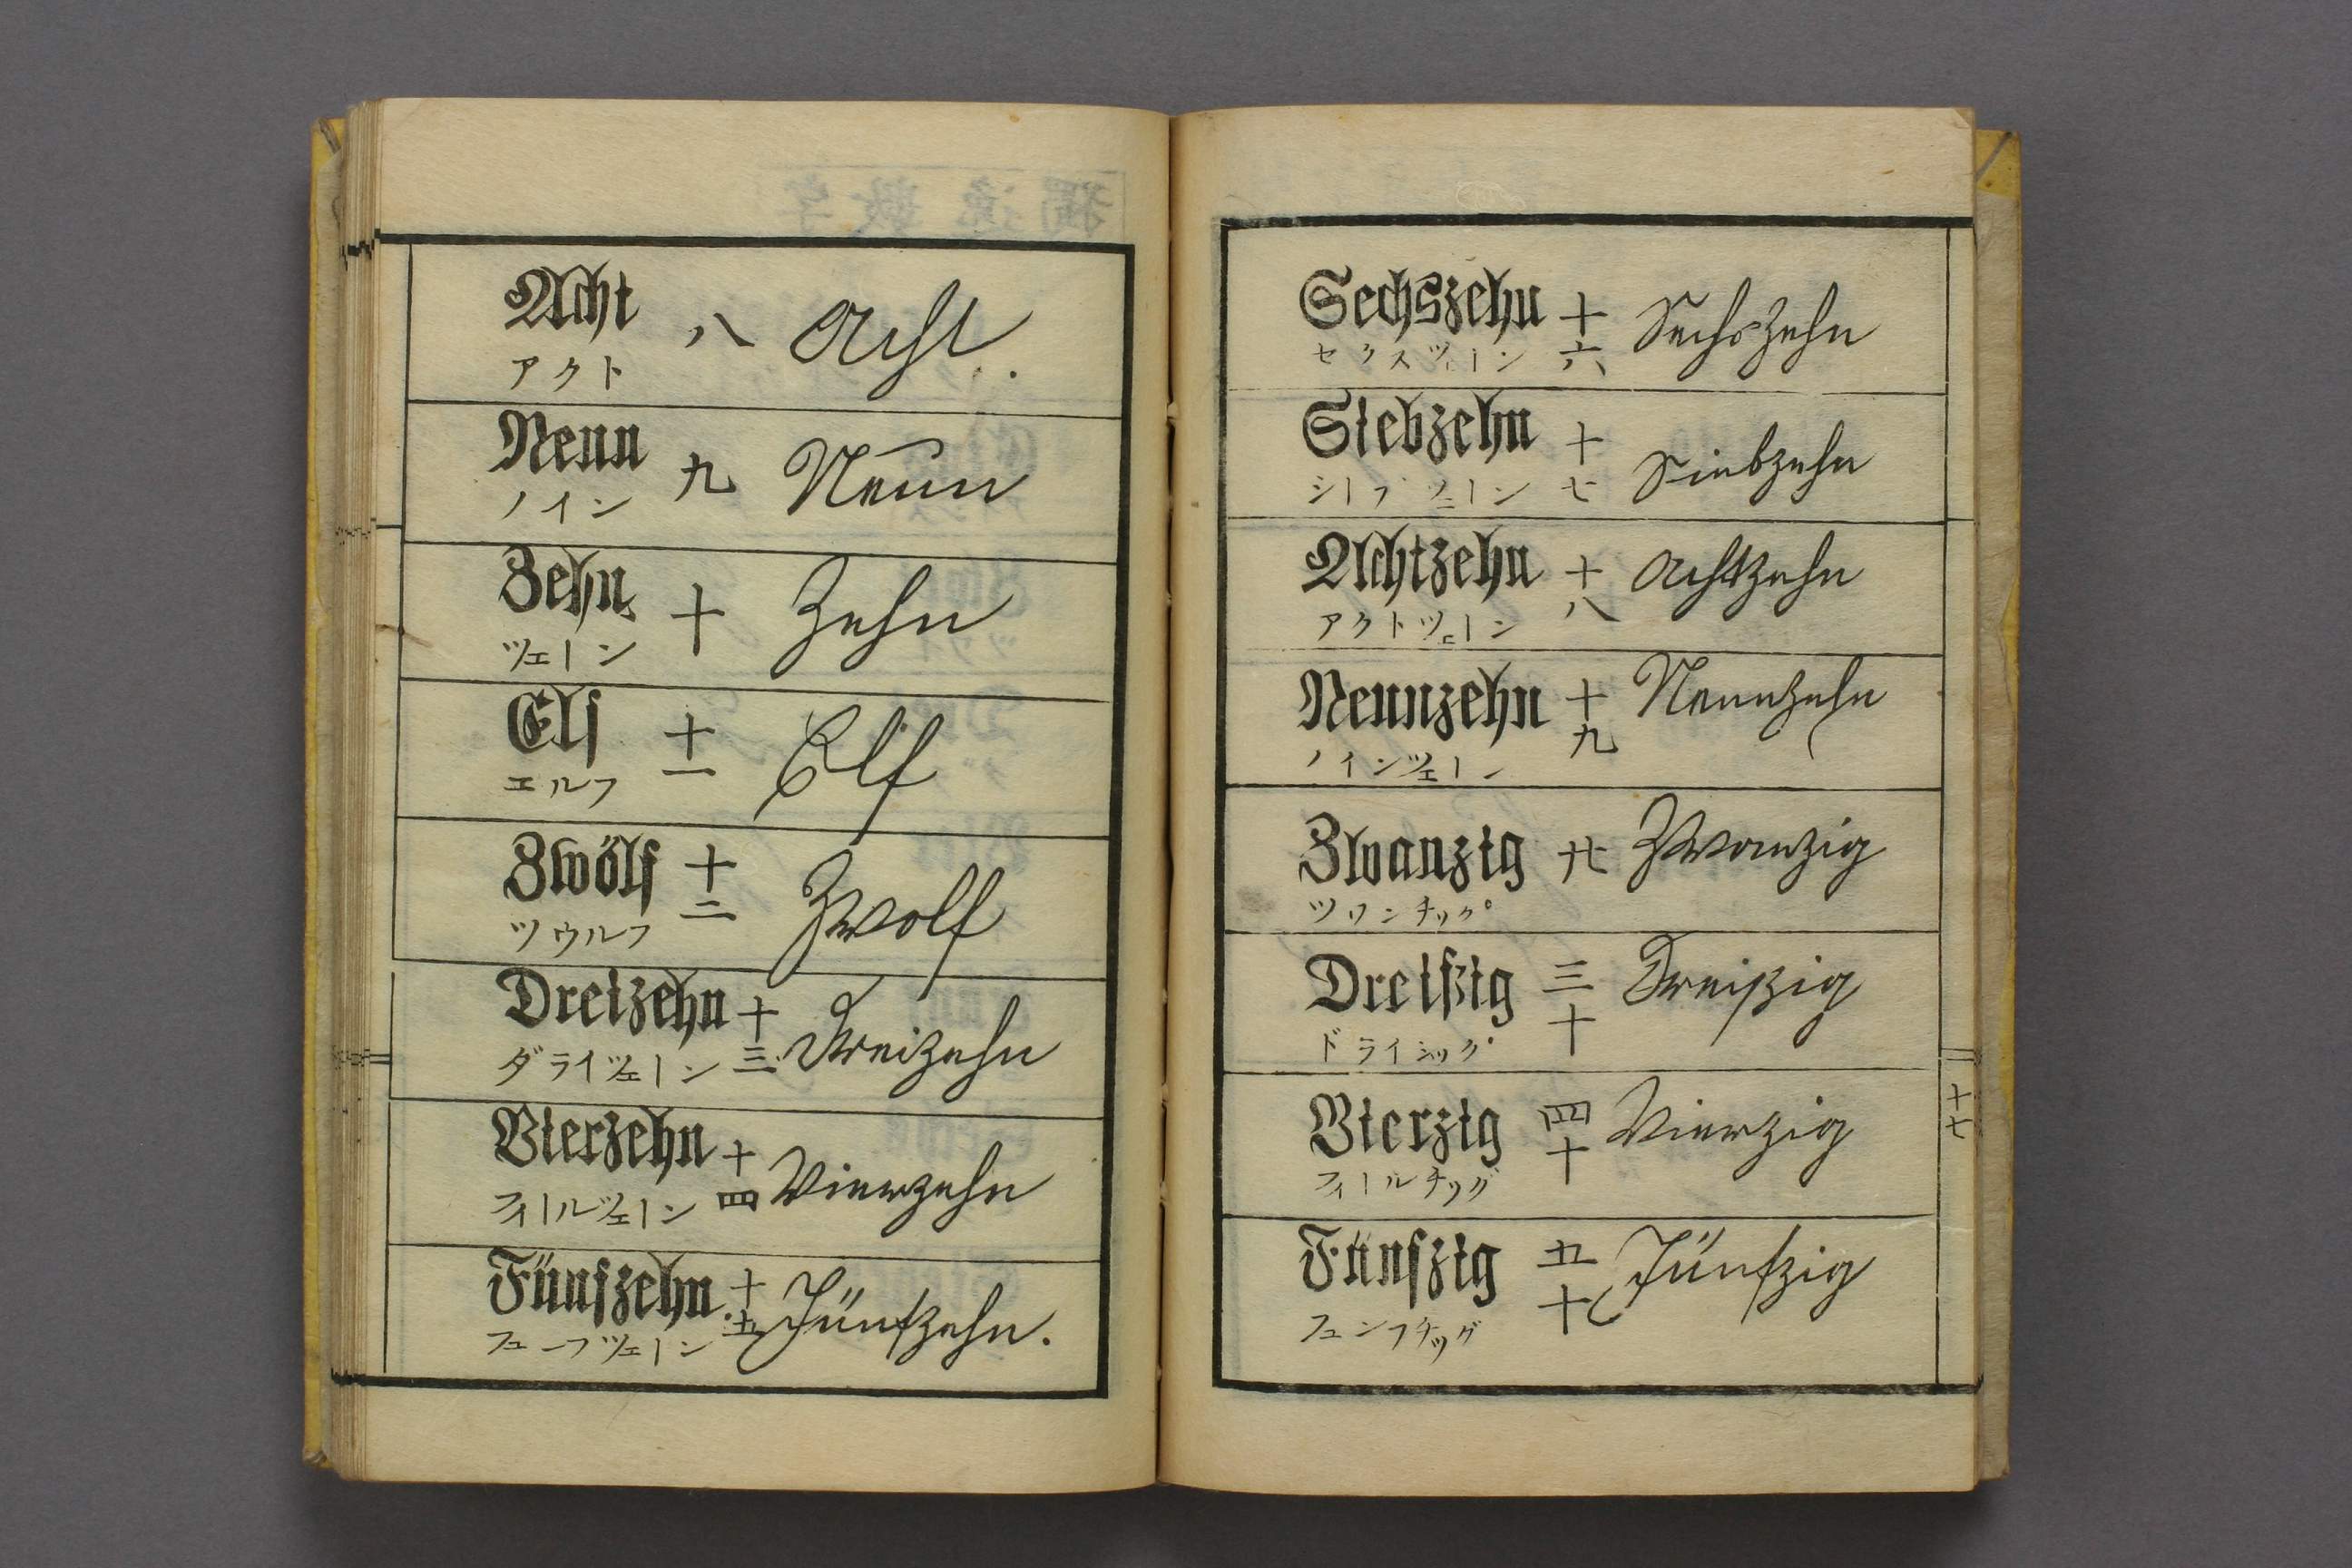 Acht 八 Acht.
アクト
Neun 九 Neun
ノイン
Zehn 十 Zehn
ツェーン
Elf 十一 Elf
エルフ
Zwölf 十二 Zwolf
ツウルフ
Dreizehn 十三 Dreizehn
ダライツェーン
Vierzehn 十四 Vierzehn
フィールツェーン
Fünfzehn. 十五 Fünfzehn.
フューフツェーン
Sechszehn 十六 Sechszehn
セクスツェーン
Siebzehn 十七 Siebzehn
シーブツェーン
Achtzehn 十八 Achtzehn
アクトツェーン
Neunzehn 十九 Neunzehn
ノインツェーン
Zwanzig 廿 Zwanzig
ツワンチッグ
Dreißig 三十 Dreißig
ドライシッグ
Vierzig 四十 Vierzig
フィールチッグ
Fünfzig 五十 Fünfzig
フュンフチッグ
十七